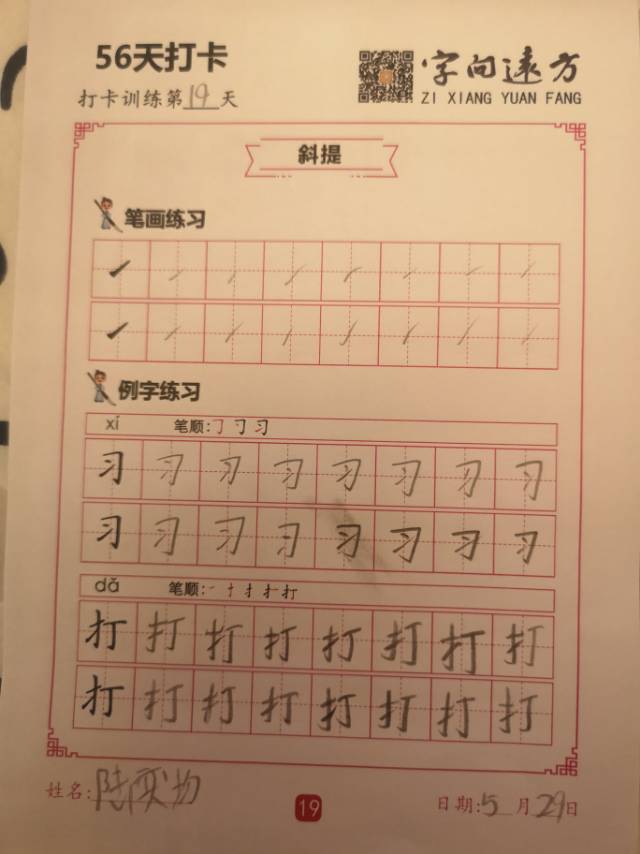 56天打卡
字向远方
打卡训练第19天
ZI XIANG YUAN FANG
斜提
笔画练习
例字练习
xí 笔顺:
习 习 习 习 习 习 习 习
习 习 习 习 习 习 习 习
dǎ 笔顺:
打 打 打 打 打 打 打 打
打 打 打 打 打 打 打 打
姓名:陆
19
日期:5月29日